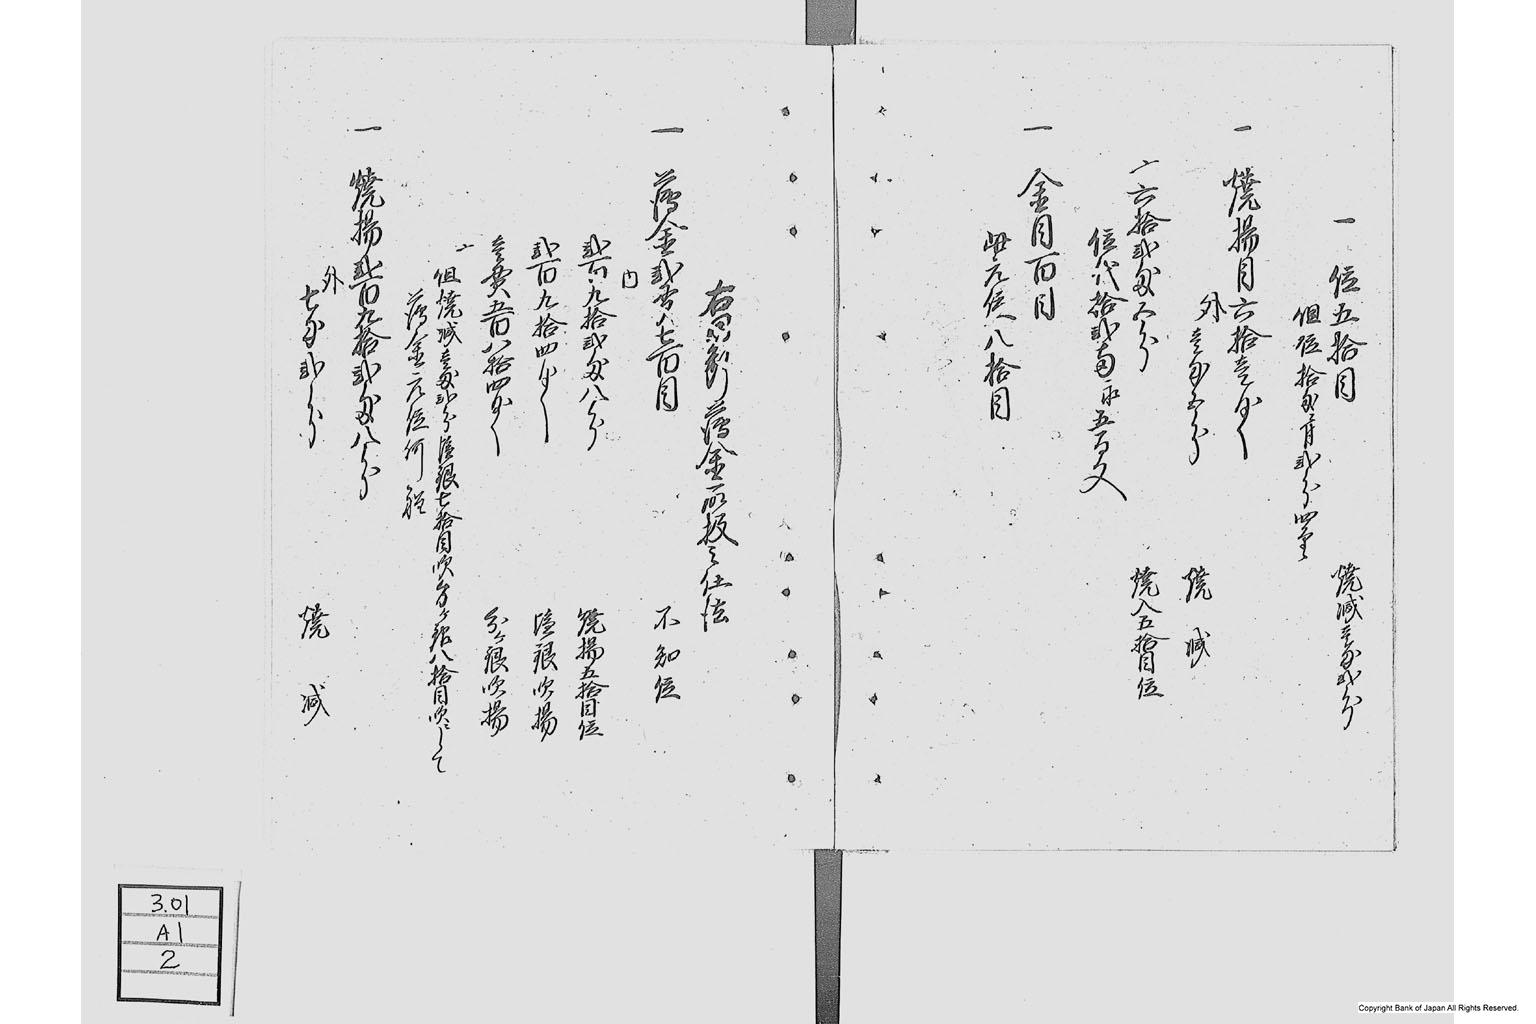 一 位五拾目 焼減壱匁弐分
但位拾匁ニ付弐分四厘
一 焼揚目六拾壱匁
外壱匁五分 焼減
〆六拾弐匁五分 焼入五拾目位
位代拾弐両永五百文
一 金目百目
此元位八拾目
右同断薄金取扱之仕法
一 薄金弐貫七百目 不知位
内
弐百九拾弐匁八分 焼揚五拾目位
弐百九拾四匁 塩銀吹揚
壱貫五百八拾四匁 分ケ銀吹揚
〆
但焼減壱匁弐分塩銀七拾目吹分ケ銀八拾目吹ニして
薄金元位何程
一 焼揚弐百九拾弐匁八分
外
七匁弐分 焼減
3.01
A1
2
Copyright Bank of Japan All Rights Reserved.